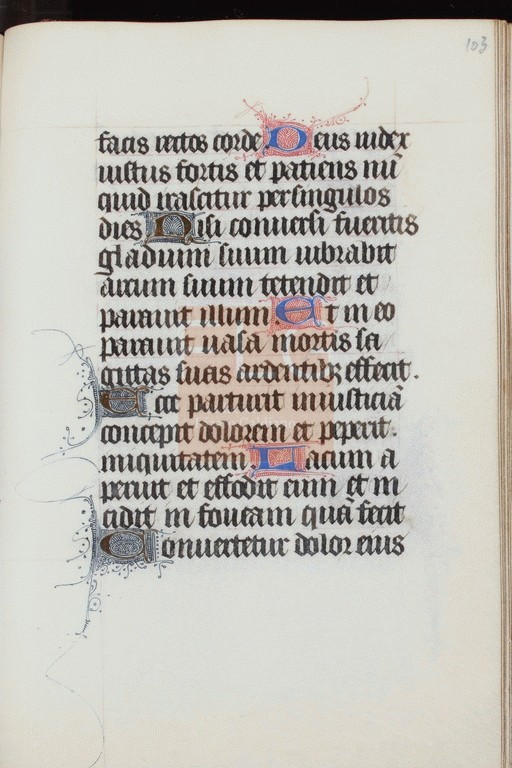 103
facis rectos corde Deus iudex
iustus fortis et patiens nū
quid irascitur per singulos
dies Nisi conuersi fueritis
gladium suum uibrabit
arcum suum tetendit et
parauit illum Et in eo
parauit uasa mortis sa
gittas suas ardentibȝ effecit.
Ecce parturit iniusticiā
concepit dolorem et peperit.
iniquitatem Lacum a
peruit et effodit eum et in
cidit in foueam quā fecit
Conuertetur dolor eius